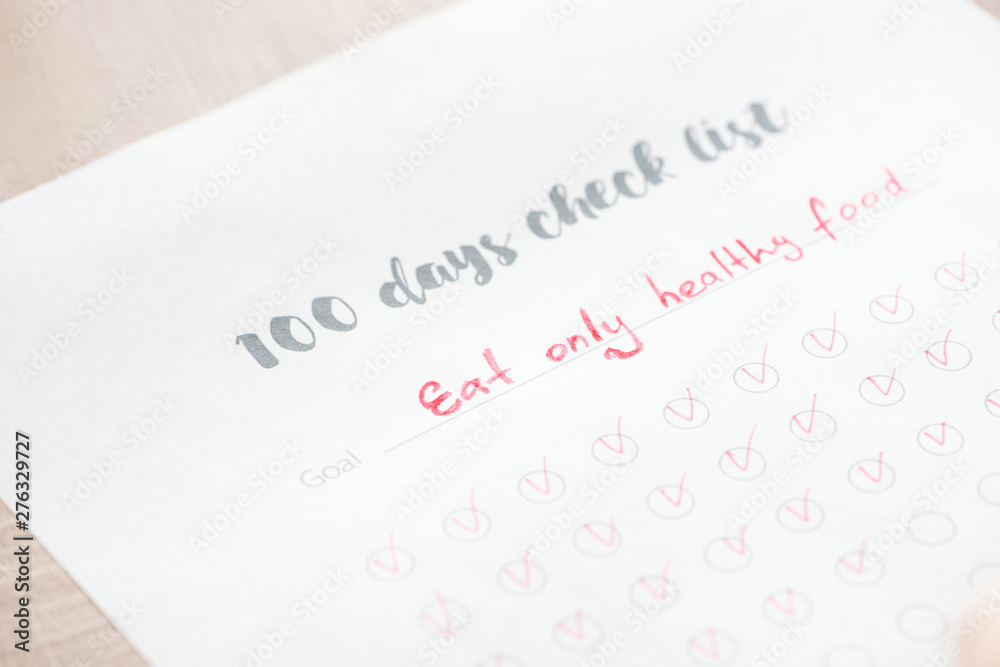 100 days check list
Eat only healthy food
Goal
Adobe Stock | #276329727